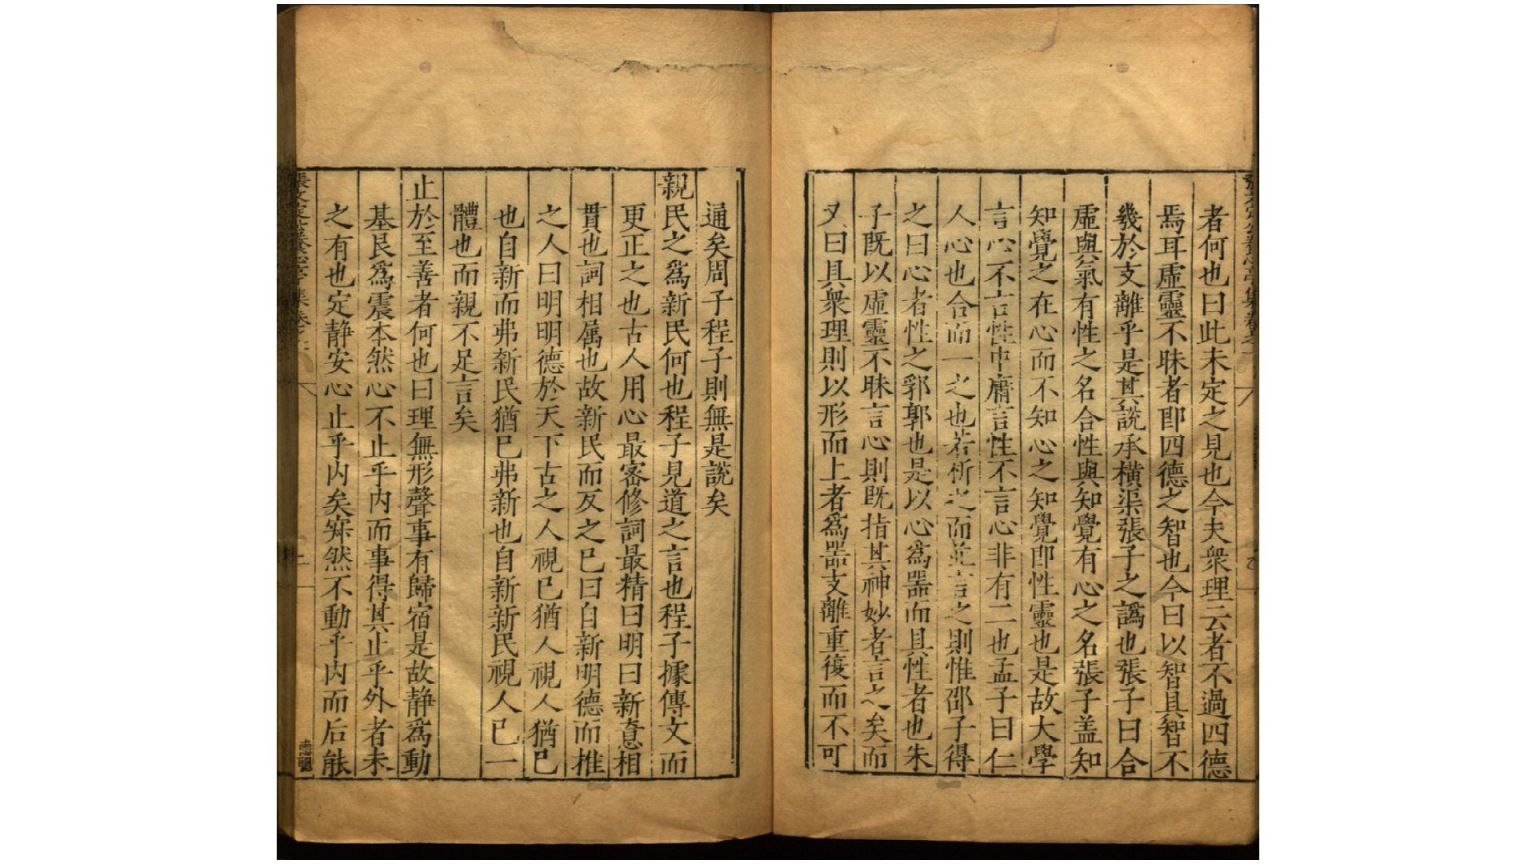 者何也曰此未定之見也今夫衆理云者不過四德
焉耳虛靈不昧者即四德之智也今曰以智具智不
幾於支離乎是其說承橫渠張子之譌也張子曰合
虛與氣有性之名合性與知覺有心之名張子盖知
知覺之在心而不知心之知覺即性靈也是故大學
言心不言性中庸言性不言心非有二也孟子曰仁
人心也合而一之也若析之而並言之則惟邵子得
之曰心者性之郛郭也是以心爲噐而具性者也朱
子既以虛靈不昧言心則既指其神妙者言之矣而
又曰具衆理則以形而上者爲噐支離重復而不可
通矣周子程子則無是說矣
親民之爲新民何也程子見道之言也程子據傳文而
更正之也古人用心最審修詞最精曰明曰新意相
貫也詞相属也故新民而反之已曰自新明德而推
之人曰明明德於天下古之人視已猶人視人猶已
也自新而弗新民猶已弗新也自新新民視人已一
體也而親不足言矣
止於至善者何也曰理無形聲事有歸宿是故静爲動
基艮爲震本然心不止乎内而事得其止乎外者未
之有也定静安心止乎内矣寂然不動乎内而后能